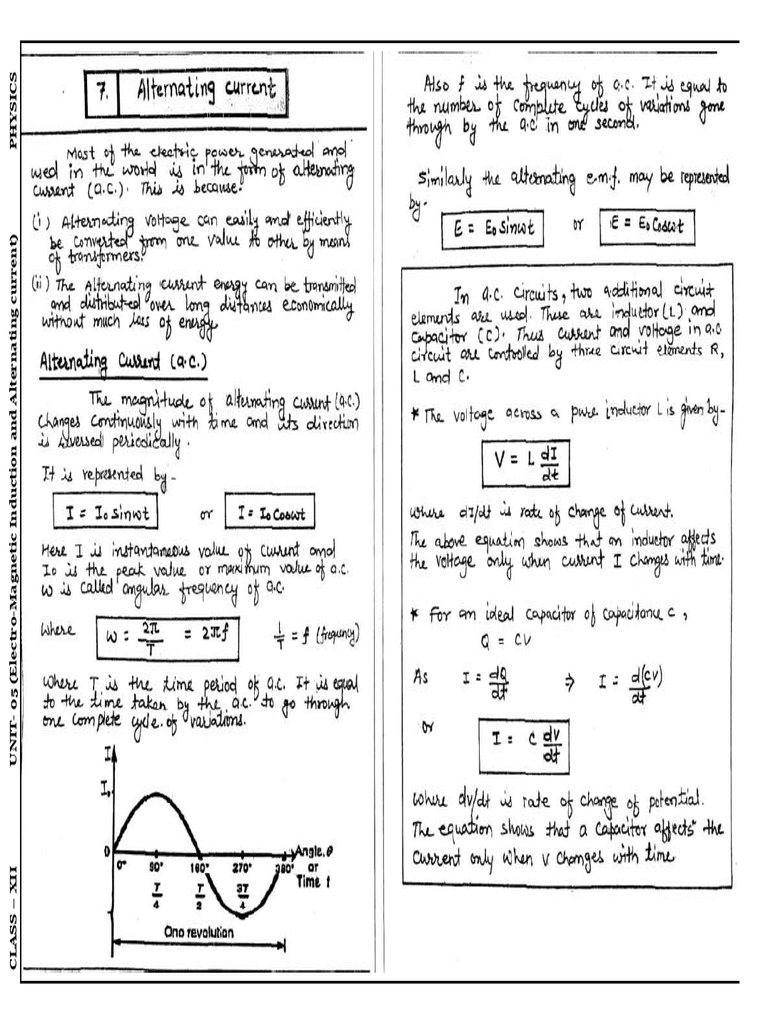 PHYSICS
UNIT- 05 (Electro-Magnetic Induction and Alternating current)
CLASS – XII
7. Alternating current
Most of the electric power generated and
used in the world is in the form of alternating
current (a.c.). This is because:
(i) Alternating voltage can easily and efficiently
be converted from one value to other by means
of transformers.
(ii) The Alternating current energy can be transmitted
and distributed over long distances economically
without much loss of energy.
Alternating Current (a.c.)
The magnitude of alternating current (a.c.)
changes continuously with time and its direction
is reversed periodically.
It is represented by-
I = I₀ sinωt or I = I₀ cosωt
Here I is instantaneous value of current and
I₀ is the peak value or maximum value of a.c.
ω is called angular frequency of a.c.
where ω = 2π/T = 2πf 1/T = f (frequency)
where T is the time period of a.c. It is equal
to the time taken by the a.c. to go through
one complete cycle of variations.
I
I₀
0
0° 90° 180° 270° 360°
Angle, θ
or
Time t
T/4 T/2 3T/4
One revolution
Also f is the frequency of a.c. It is equal to
the number of complete cycles of variations gone
through by the a.c in one second.
Similarly the alternating e.m.f. may be represented
by-
E = E₀ Sinωt or E = E₀ Cosωt
In a.c. circuits, two additional circuit
elements are used. These are inductor (L) and
capacitor (C). Thus current and voltage in a.c
circuit are controlled by three circuit elements R,
L and C.
* The voltage across a pure inductor L is given by-
V = L dI/dt
where dI/dt is rate of change of current.
The above equation shows that an inductor affects
the voltage only when current I changes with time.
* For an ideal capacitor of capacitance C,
Q = CV
As I = dQ/dt ⇒ I = d(CV)/dt
or I = C dV/dt
where dv/dt is rate of change of potential.
The equation shows that a capacitor affects the
current only when V changes with time